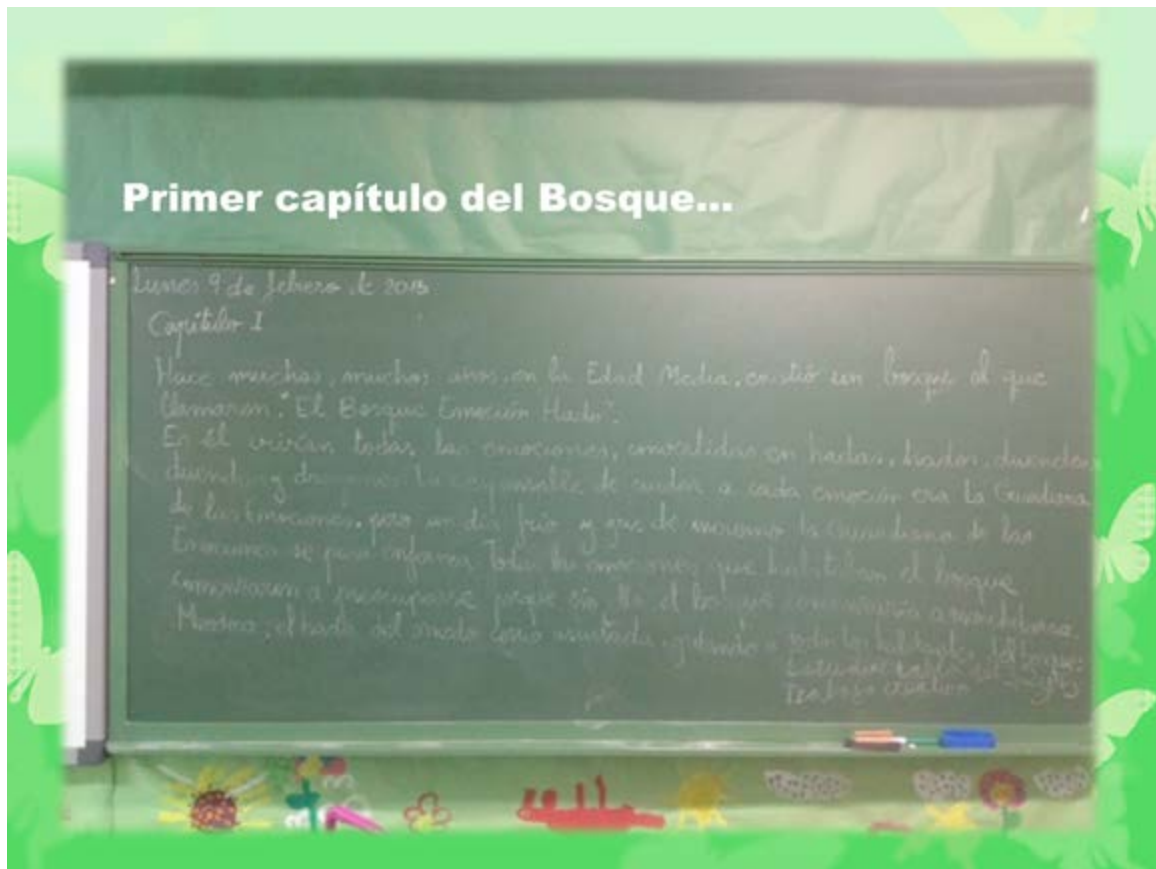 Primer capítulo del Bosque...
Lunes 9 de febrero de 2015
Capítulo I
Hace muchos, muchos años, en la Edad Media, existió un bosque al que
llamaron: "El Bosque Emoción Hado".
En él vivían todas las emociones, convertidas en hadas, hados, duendes,
duendas y dragones. La responsable de cuidar a cada emoción era la Guardiana
de las Emociones, pero un día frío y gris de invierno la Guardiana de las
Emociones se puso enferma. Todas las emociones que habitaban el bosque
comenzaron a preocuparse porque sin ella el bosque comenzaría a
el hada del miedo corrió asustada, gritando a todos los habitantes del bosque:
Estudiar tabla del
Trabajo creativo